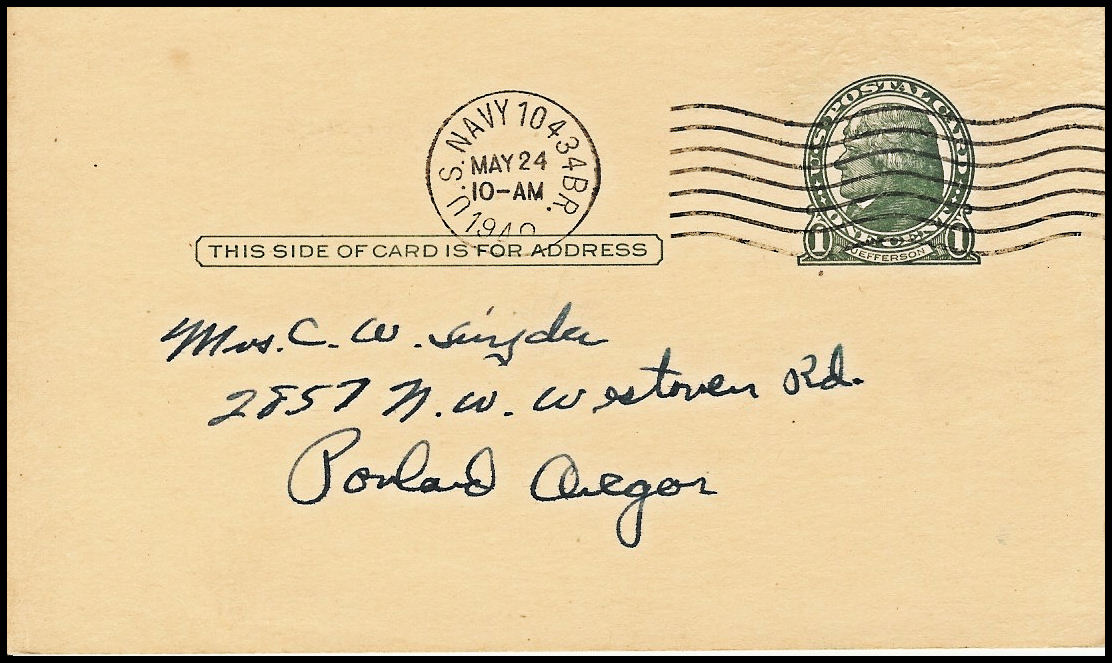 U.S. NAVY 10434 BR.
MAY 24
10-AM
U.S. POSTAL CARD
ONE CENT
1 JEFFERSON 1
THIS SIDE OF CARD IS FOR ADDRESS
Mrs. C. W. Snyder
2857 N.W. Westover Rd.
Porland Oregon